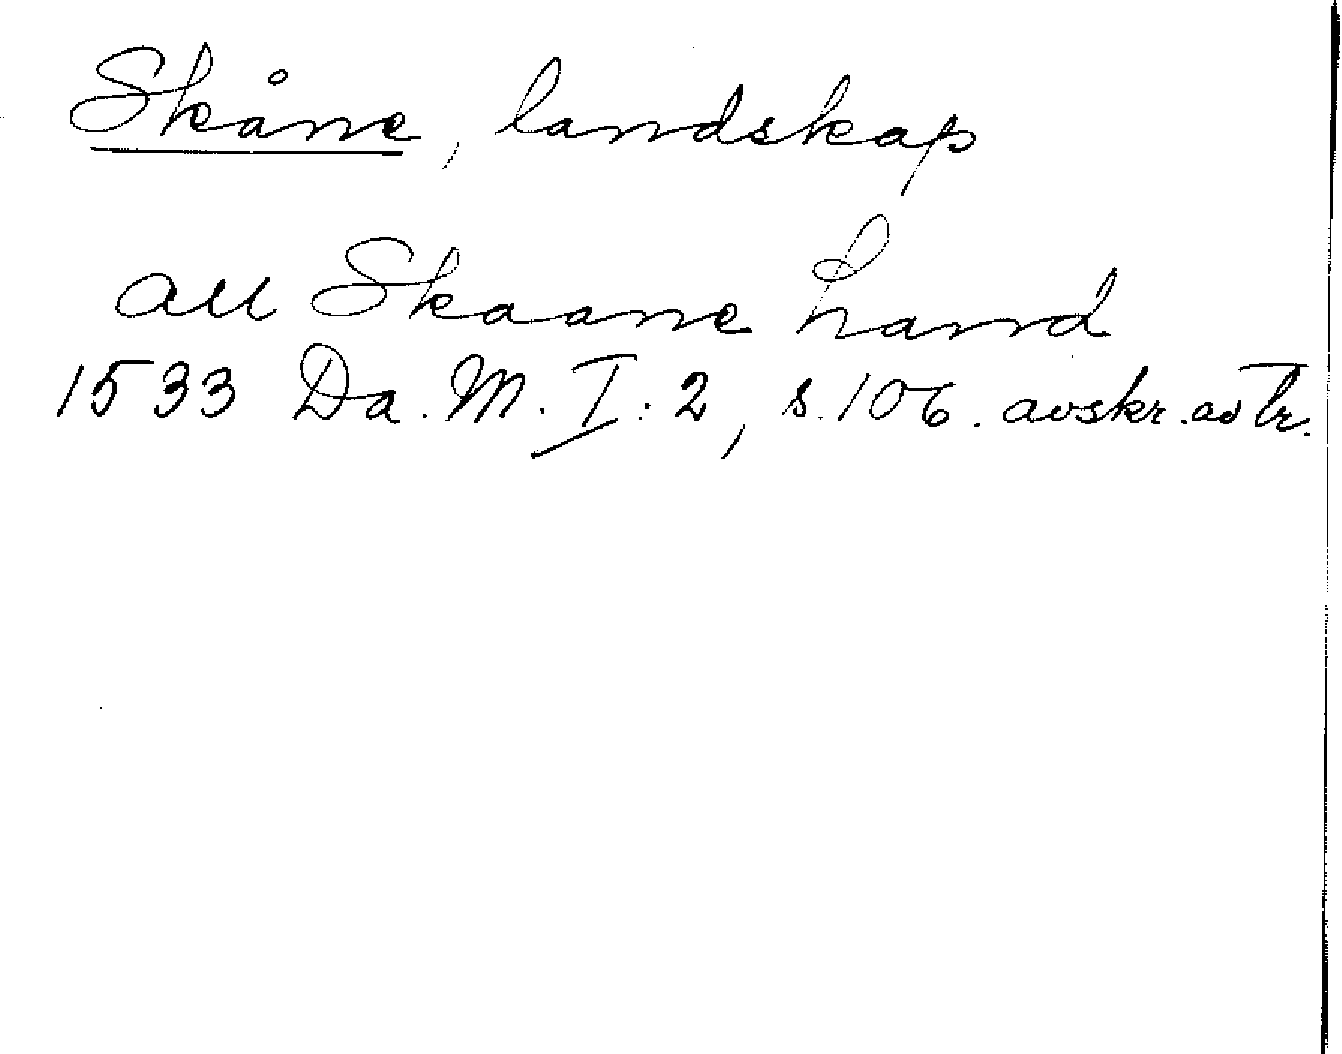 Skåne, landskap
all Skaane land
1533 Da. M. I: 2, s. 106. avskr. av tr.